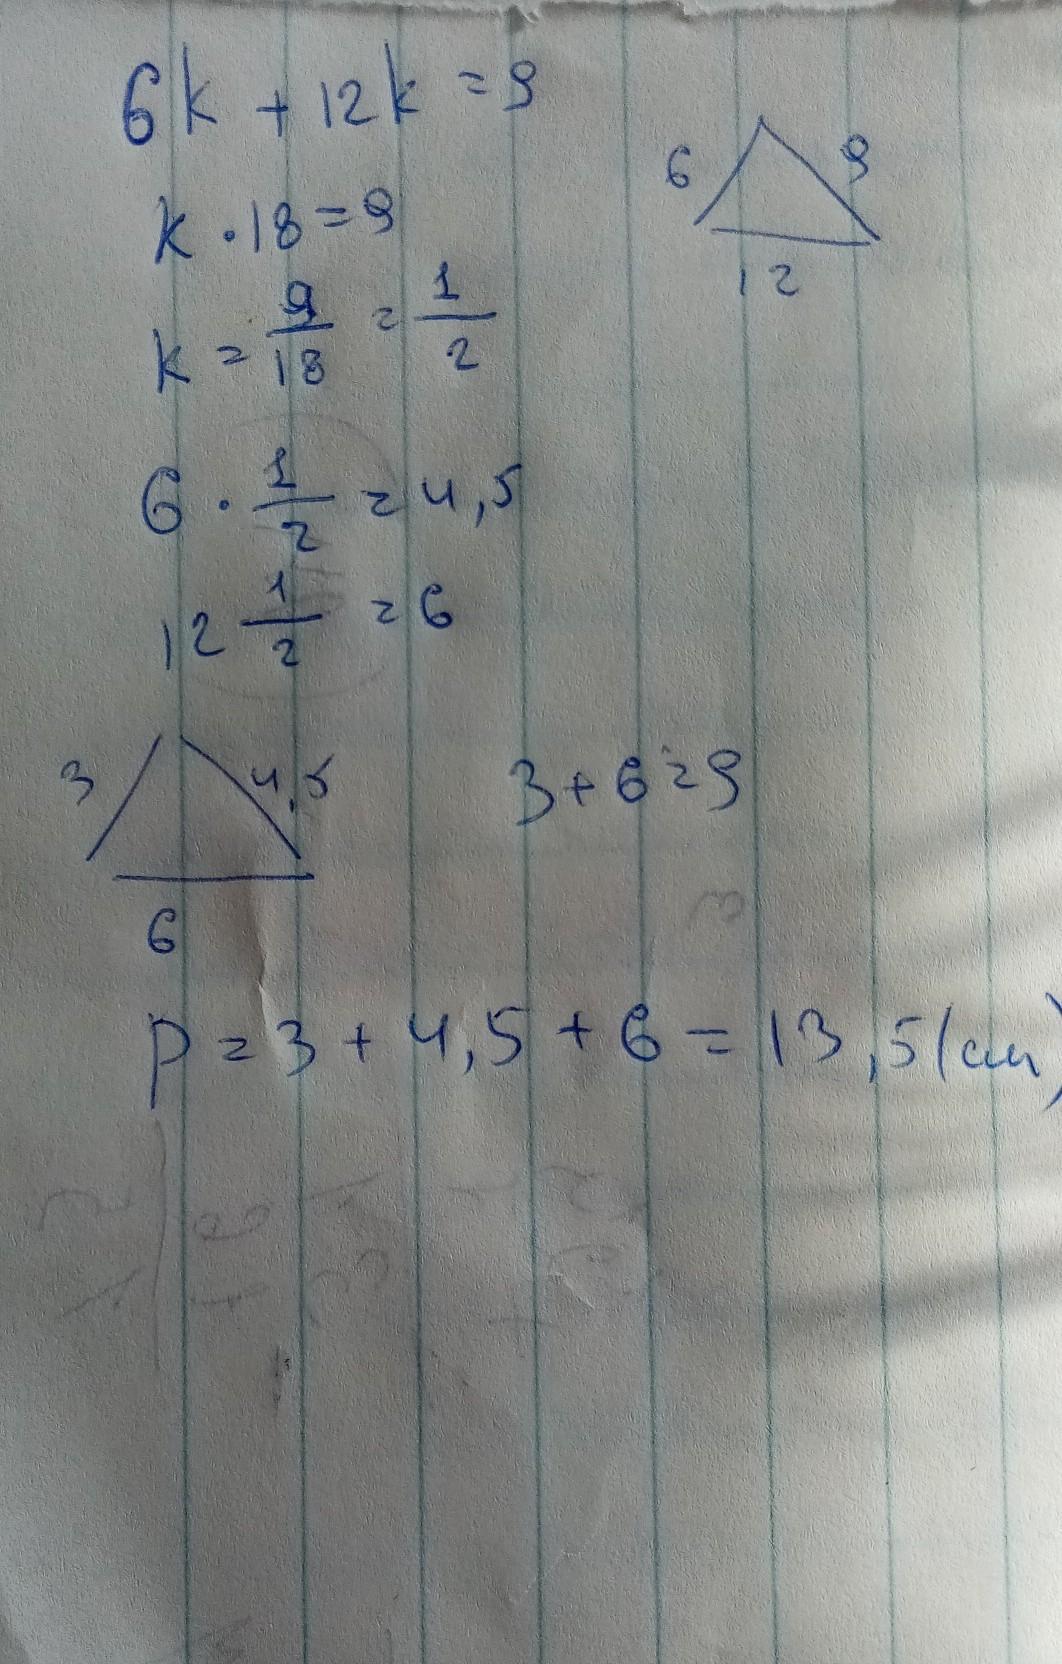 6k + 12k = 9
6
9
12
k · 18 = 9
k = 9/18 = 1/2
6 · 1/2 = 4,5
12 1/2 = 6
3
4,5
6
3 + 6 = 9
P = 3 + 4,5 + 6 = 13,5 (см)